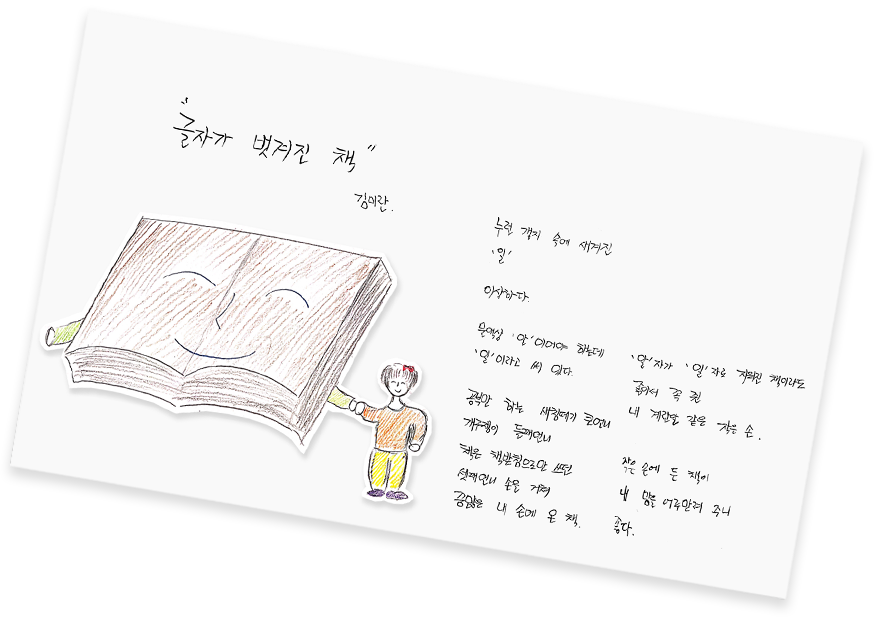 "글자가 벗겨진 책"
김미란.
누런 갱지 속에 새겨진
'일'
이상하다.
문맥상 '말'이어야 하는데
'일'이라고 써 있다.
공부만 하는 새침데기 큰언니
개구쟁이 둘째언니
책은 책받침으로만 쓰던
셋째언니 손을 거쳐
콩닮은 내 손에 온 책.
'말'자가 '일'자로 지워진 책이라도
좋아서 꼭 쥔
내 계란알 같은 작은 손.
작은 손에 든 책이
내 맘을 어루만져 주니
좋다.